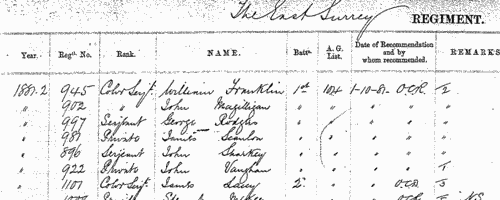 The East Surrey REGIMENT.
Year. Regtl. No. Rank. NAME. Battn. A. G. List. Date of Recommendation and by whom recommended. REMARKS
1881-2 945 Color Serjt. William Franklin 1st 104 1-10-81 O.C.R. 2
" 902 " John Magilligan " " " "
" 997 Serjeant George Rodgers " " " "
" 987 Private James Scanlon " " "
" 896 Serjeant John Sharkey " " "
" 922 Private John Vaughan " " " 1
" 1101 Color Serjt. James Lacey 2 " " O.C.R. 3